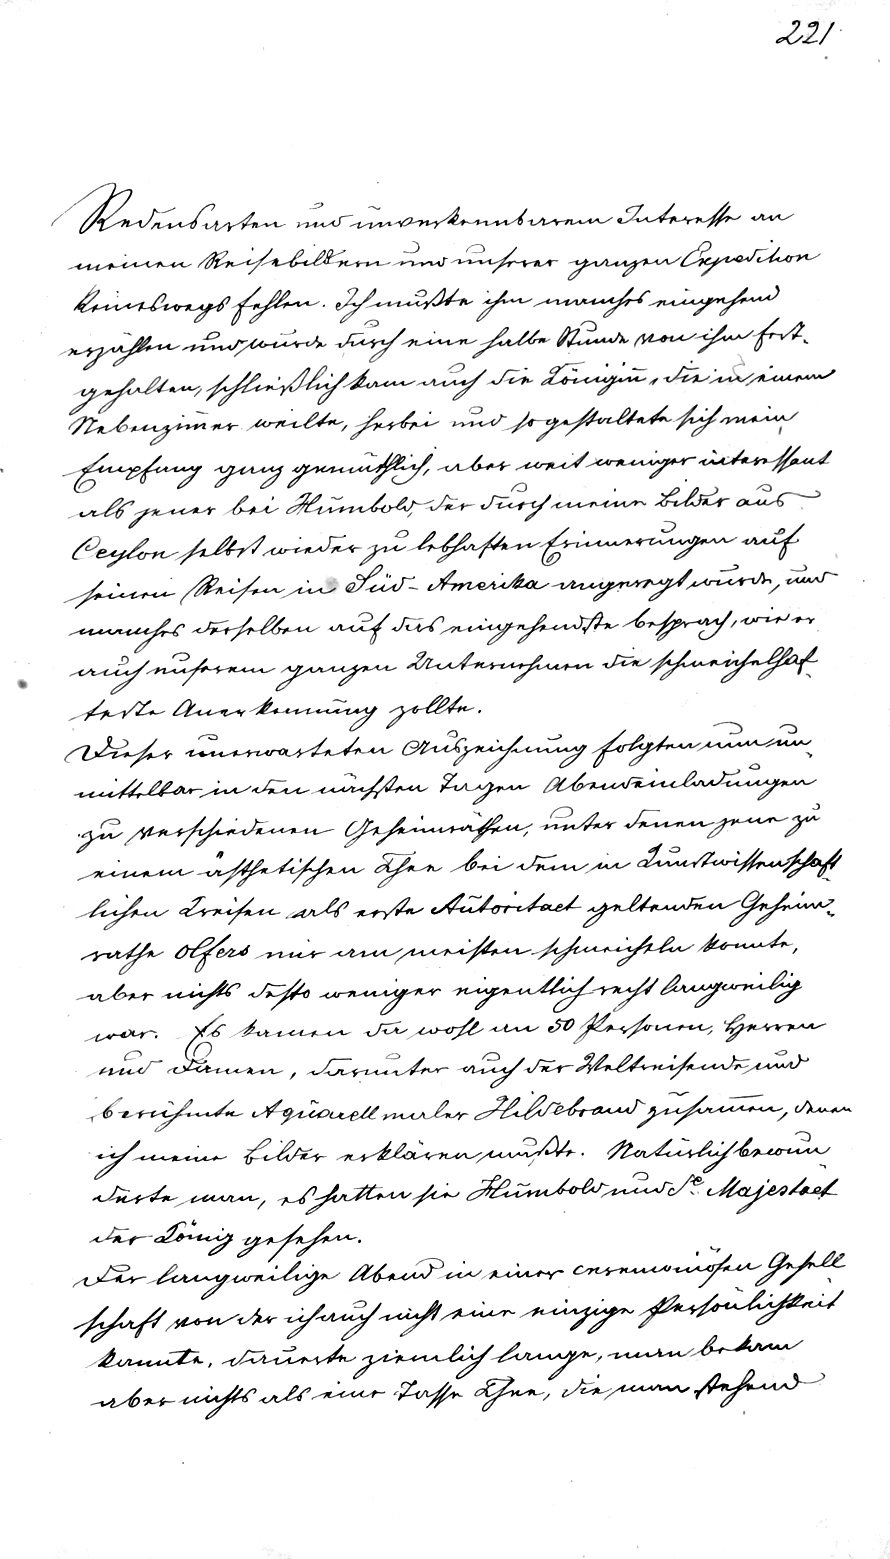 221
Redensarten und unverkennbarem Interesse an
meinen Reisebildern und unserer ganzen Expedition
keineswegs fehlen. Ich mußte ihm manches eingehend
erzählen und wurde durch eine halbe Stunde von ihm fest-
gehalten, schließlich kam auch die Königin, die in einem
Nebenzimmer weilte, herbei und so gestaltete sich mein
Empfang ganz gemüthlich, aber weit weniger interessant
als jener bei Humbold, der durch meine Bilder aus
Ceylon selbst wieder zu lebhaften Erinnerungen auf
seinen Reisen in Süd-Amerika angeregt wurde, und
manches derselben auf das eingehendste besprach, wie er
auch unserem ganzen Unternehmen die schmeichelhaf-
teste Anerkennung zollte.
Dieser unerwarteten Auszeichnung folgten nun un-
mittelbar in den nächsten Tagen Abendeinladungen
zu verschiedenen Geheimräthen, unter denen jene zu
einem ästhetischen Thee bei dem in Kunstwissenschaft-
lichen Kreisen als erste Autoritaet geltenden Geheim-
rathe Olfers mir am meisten schmeicheln konnte,
aber nichts desto weniger eigentlich recht langweilig
war. Es kamen da wohl an 50 Personen, Herren
und Damen, darunter auch der Weltreisende und
berühmte Aquarellmaler Hildebrand zusammen, denen
ich meine Bilder erklären mußte. Natürlich bewun
derte man, es hatten sie Humbold und Se. Majestaet
der König gesehen.
Der langweilige Abend in einer ceremoniösen Gesell
schaft von der ich auch nicht eine einzige Persönlichkeit
kannte, dauerte ziemlich lange, man bekam
aber nichts als eine Tasse Thee, die man stehend